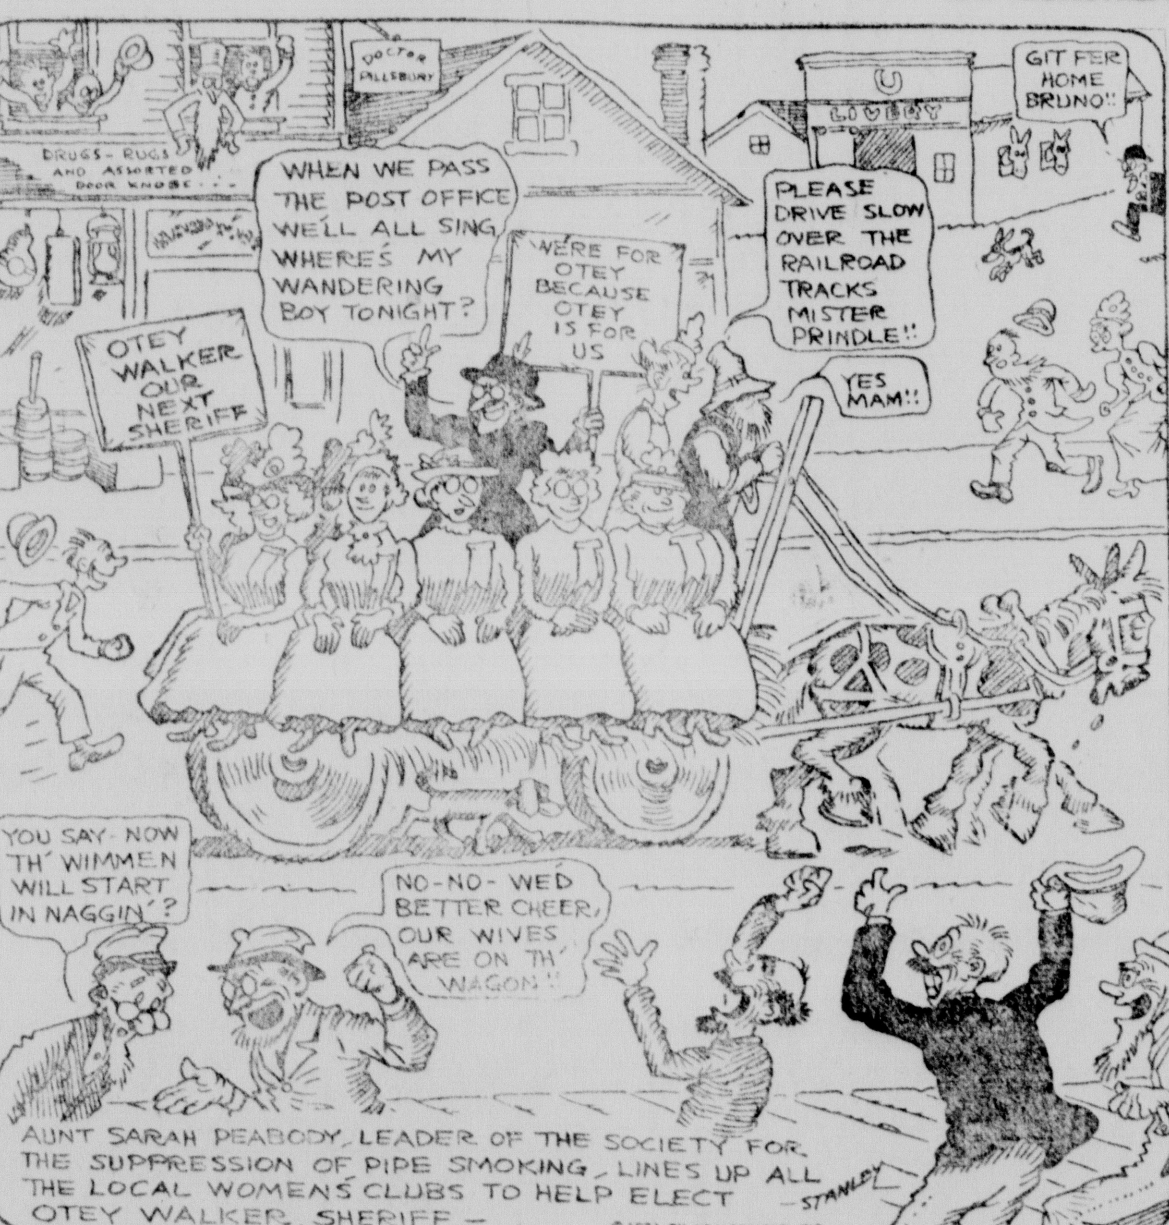 DOCTOR
PILLSBURY
LIVERY
GIT FER
HOME
BRUNO!!
DRUGS - RUGS
AND ASSORTED
DOOR KNOBS - - -
WHEN WE PASS
THE POST OFFICE
WE'LL ALL SING
WHERE'S MY
WANDERING
BOY TONIGHT?
WE'RE FOR
OTEY
BECAUSE
OTEY
IS FOR
US
PLEASE
DRIVE SLOW
OVER THE
RAILROAD
TRACKS
MISTER
PRINDLE!!
YES
MAM!!
OTEY
WALKER
OUR
NEXT
SHERIFF
YOU SAY - NOW
TH' WIMMEN
WILL START
IN NAGGIN'?
NO-NO- WE'D
BETTER CHEER,
OUR WIVES
ARE ON TH'
WAGON!!
AUNT SARAH PEABODY, LEADER OF THE SOCIETY FOR
THE SUPPRESSION OF PIPE SMOKING, LINES UP ALL
THE LOCAL WOMEN'S CLUBS TO HELP ELECT
OTEY WALKER SHERIFF -
-STANLEY